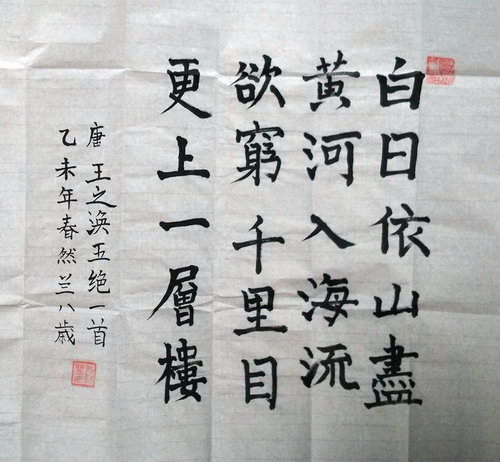 白日依山盡
黄河入海流
欲窮千里目
更上一層樓
唐王之涣五绝一首
乙未年春然兰八歳